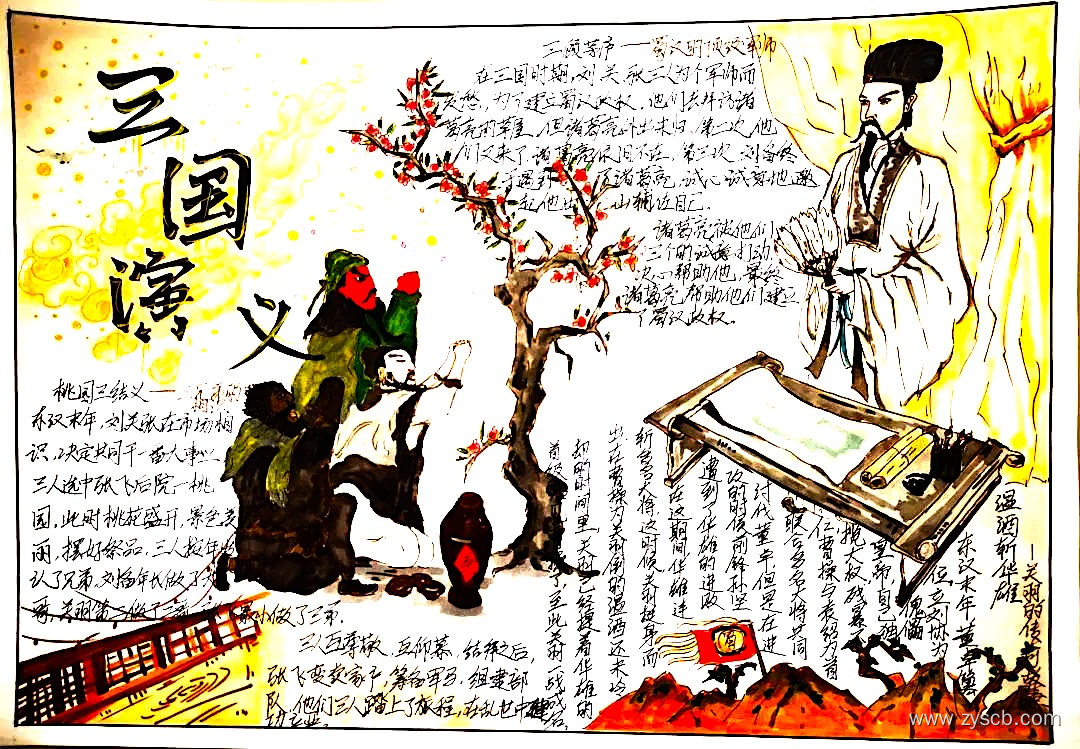 三国演义
三顾茅庐——蜀汉的顶级军师
在三国时期,刘、关、张三人为个军师而
发愁,为了建立蜀汉政权,他们去拜访诸
葛亮的草屋,但诸葛亮外出未归,第二次,他
们又来了,诸葛亮依旧不在,第三次,刘备终
于遇到 诸葛亮,诚心诚意地邀
起他出 山辅佐自己.
诸葛亮被他们
三个的诚 打动,
决心帮助他,最终
诸葛亮帮助他们建立
了蜀汉政权.
桃园三结义——
东汉末年,刘关张在市场相
识,决定共同干一番大事业
三人选中张飞后院一桃
园,此时桃花盛开,景色美
丽,摆好祭品,三人按年
认了兄弟,刘备年长做了大
哥,关羽第二做了二哥 最小做了三弟.
三人互尊敬,互仰慕,结拜之后,
张飞变卖家产,筹备军马,组建部
队,他们三人踏上了旅程,在乱世中
温酒斩华雄
——关羽的传奇
东汉末年,董卓
位,立刘协为
傀儡
自己独
揽大权,残暴
仁,曹操与袁绍为首
联合多名大将共同
讨伐董卓,但是在进
攻的时候前锋孙坚
遭到了华雄的进攻
在这期间,华雄连
斩多名大将,这时候关羽挺身而
出,在曹操为关羽倒的温酒还未冷
却的时间里,关羽已经提着华雄的
首级 了,至此关羽一战成名.
www.zyscb.com